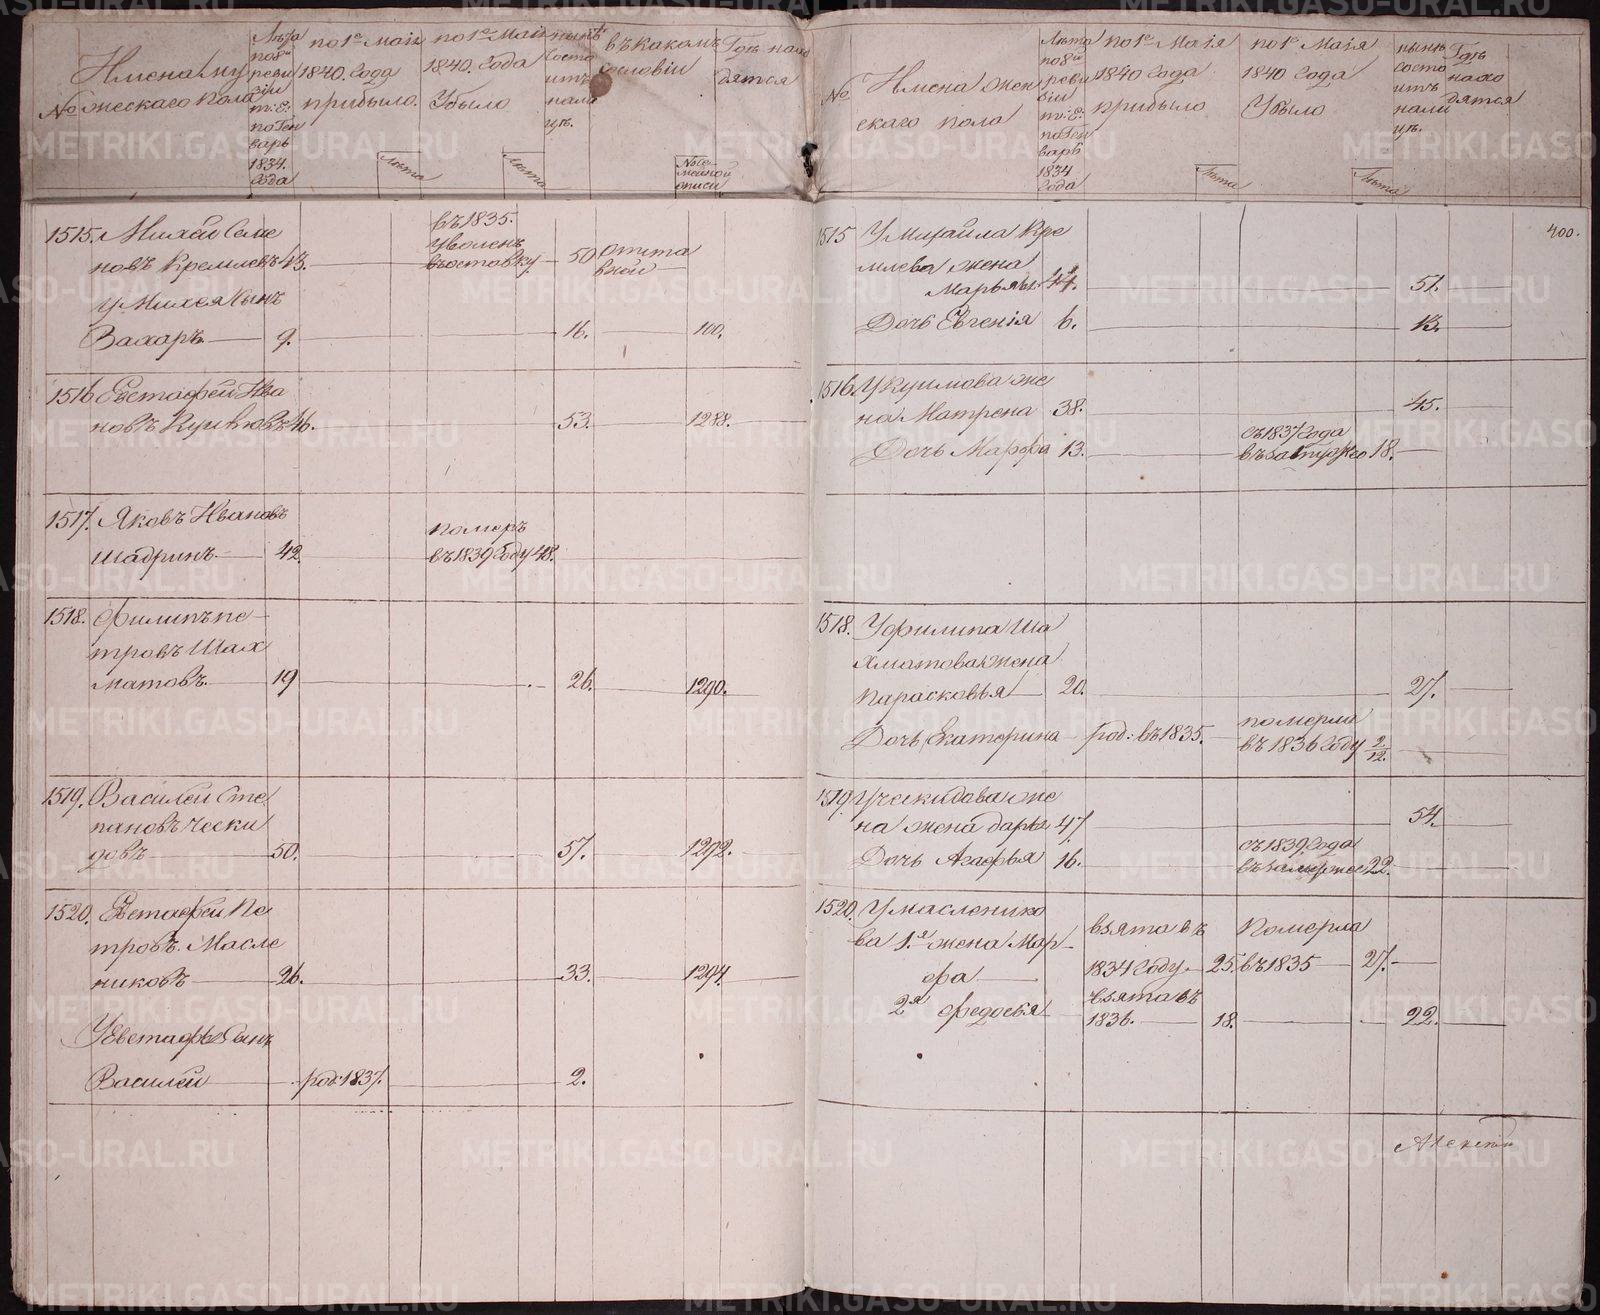 №
Имена му
жескаго пола
Лѣта
по 8й
реви
зіи
т: е:
по Ген
варь
1834.
года
по 1е Маія
1840. года
прибыло.
Лѣта
по 1е Маія
1840. года
Убыло
Лѣта
нынѣ
состо
итъ
нали
цѣ.
въ какомъ
сословіи
№ се-
мейной
описи
Гдѣ нахо
дятся
1515. Михей Семе
новъ Кремлевъ 43.
въ 1835.
уволенъ
въ оставку
50
отста
вной
у Михея сынъ
Захаръ 9. 16. 100.
1516 Евстафей Ива
новъ 46. 53. 1288.
1517. Яковъ Ивановъ
Шадринъ 42.
померъ
въ 1839 году 48.
1518. Филипъ Пе-
тровъ Шах
матовъ 19 26. 1290.
1519. Василей Сте
пановъ Чески
довъ 50. 57. 1292.
1520. Евстафей Пе
тровъ Масле
никовъ 26. 33. 1294.
У Евстафья сынъ
Василей род: 1837. 2.
№
Имена жен
скаго пола
Лѣта
по 8й
реви
зіи
т: е:
по Ген
варь
1834
года
по 1е Маія
1840 года
прибыло
Лѣта
по 1е Маія
1840 года
Убыло
Лѣта
нынѣ
состо
итъ
нали
цѣ.
Гдѣ
нахо
дятся
400.
1515 У Михайла Кре
млева жена
Марья 44. 51.
Дочь Евгенія 6. 13.
1516 У жe
на Матрена 38. 45.
Дочь Марфа 13.
съ 1837 года
въ замужес 18.
1518. У Филипа Ша
хматова жена
Парасковья 20. 27.
Дочь Екатерина род: въ 1835.
померла
въ 1836 году 2/12.
1519. У Ческидова же
на жена Дарья 47 54.
Дочь Агафья 16.
съ 1839 года
въ замужес 22.
1520. У Масленико
ва 1.я жена Мар-
фа
взята въ
1834 году 25.
Померла
въ 1835 27.
2я Федосья
взята въ
1836. 18. 22.